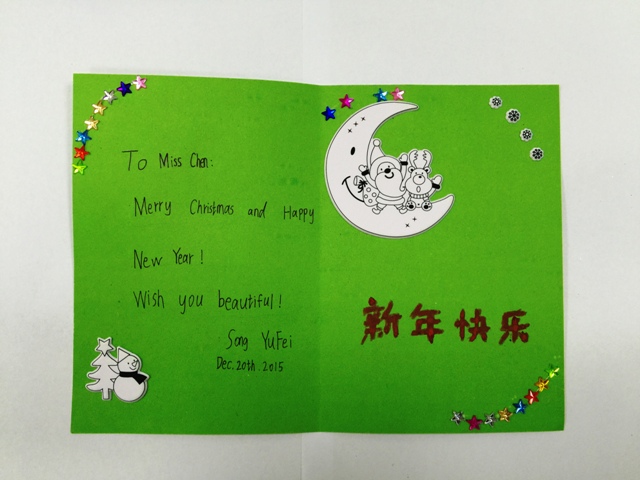 To Miss Chen:
Merry Christmas and Happy
New Year!
Wish you beautiful!
Song YuFei
Dec. 20th. 2015
新年快乐